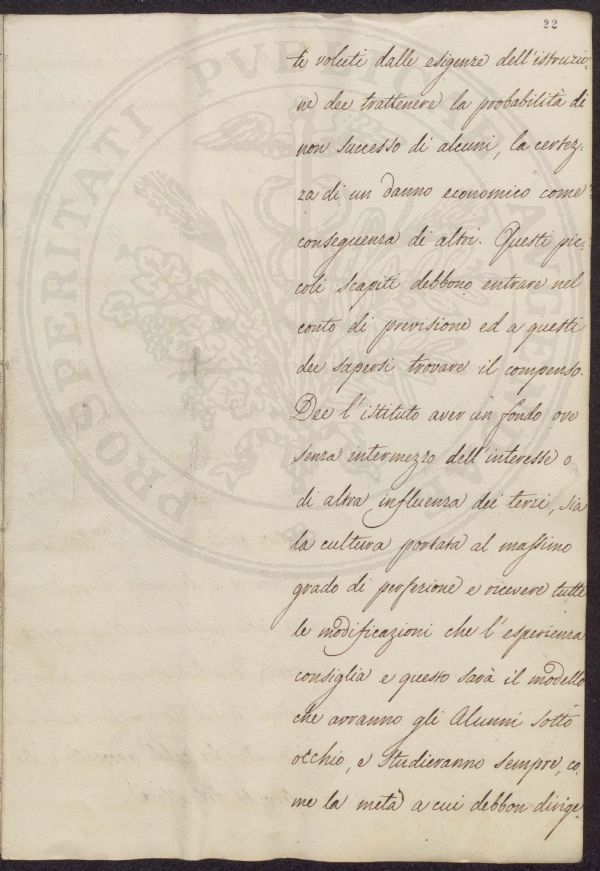 22
te voluti dalle esigenze dell'istruzio-
ne dee trattenere la probabilità di
non successo di alcuni, la certez-
za di un danno economico come
conseguenza di altri. Questi pic-
coli scapiti debbono entrare nel
conto di previsione ed a questi
dee sapersi trovare il compenso.
Dee l'istituto aver un fondo ove
senza intermezzo dell'interesse o
di altra influenza dei terzi, sia
la cultura portata al massimo
grado di perfezione e ricevere tutte
le modificazioni che l'esperienza
consiglia e questo sarà il modello
che avranno gli Alunni sotto
occhio, e studieranno sempre, co-
me la metà a cui debbon dirige-
PROSPERITATI PVBLICAE